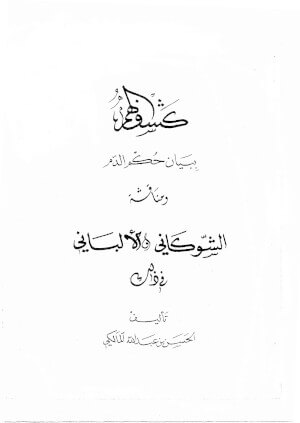 كشف الهمم
ببيان حكم الدم
ومناقشة
الشوكاني والألباني
في ذلك
تأليف
الحسن بن عبدالله المالكي